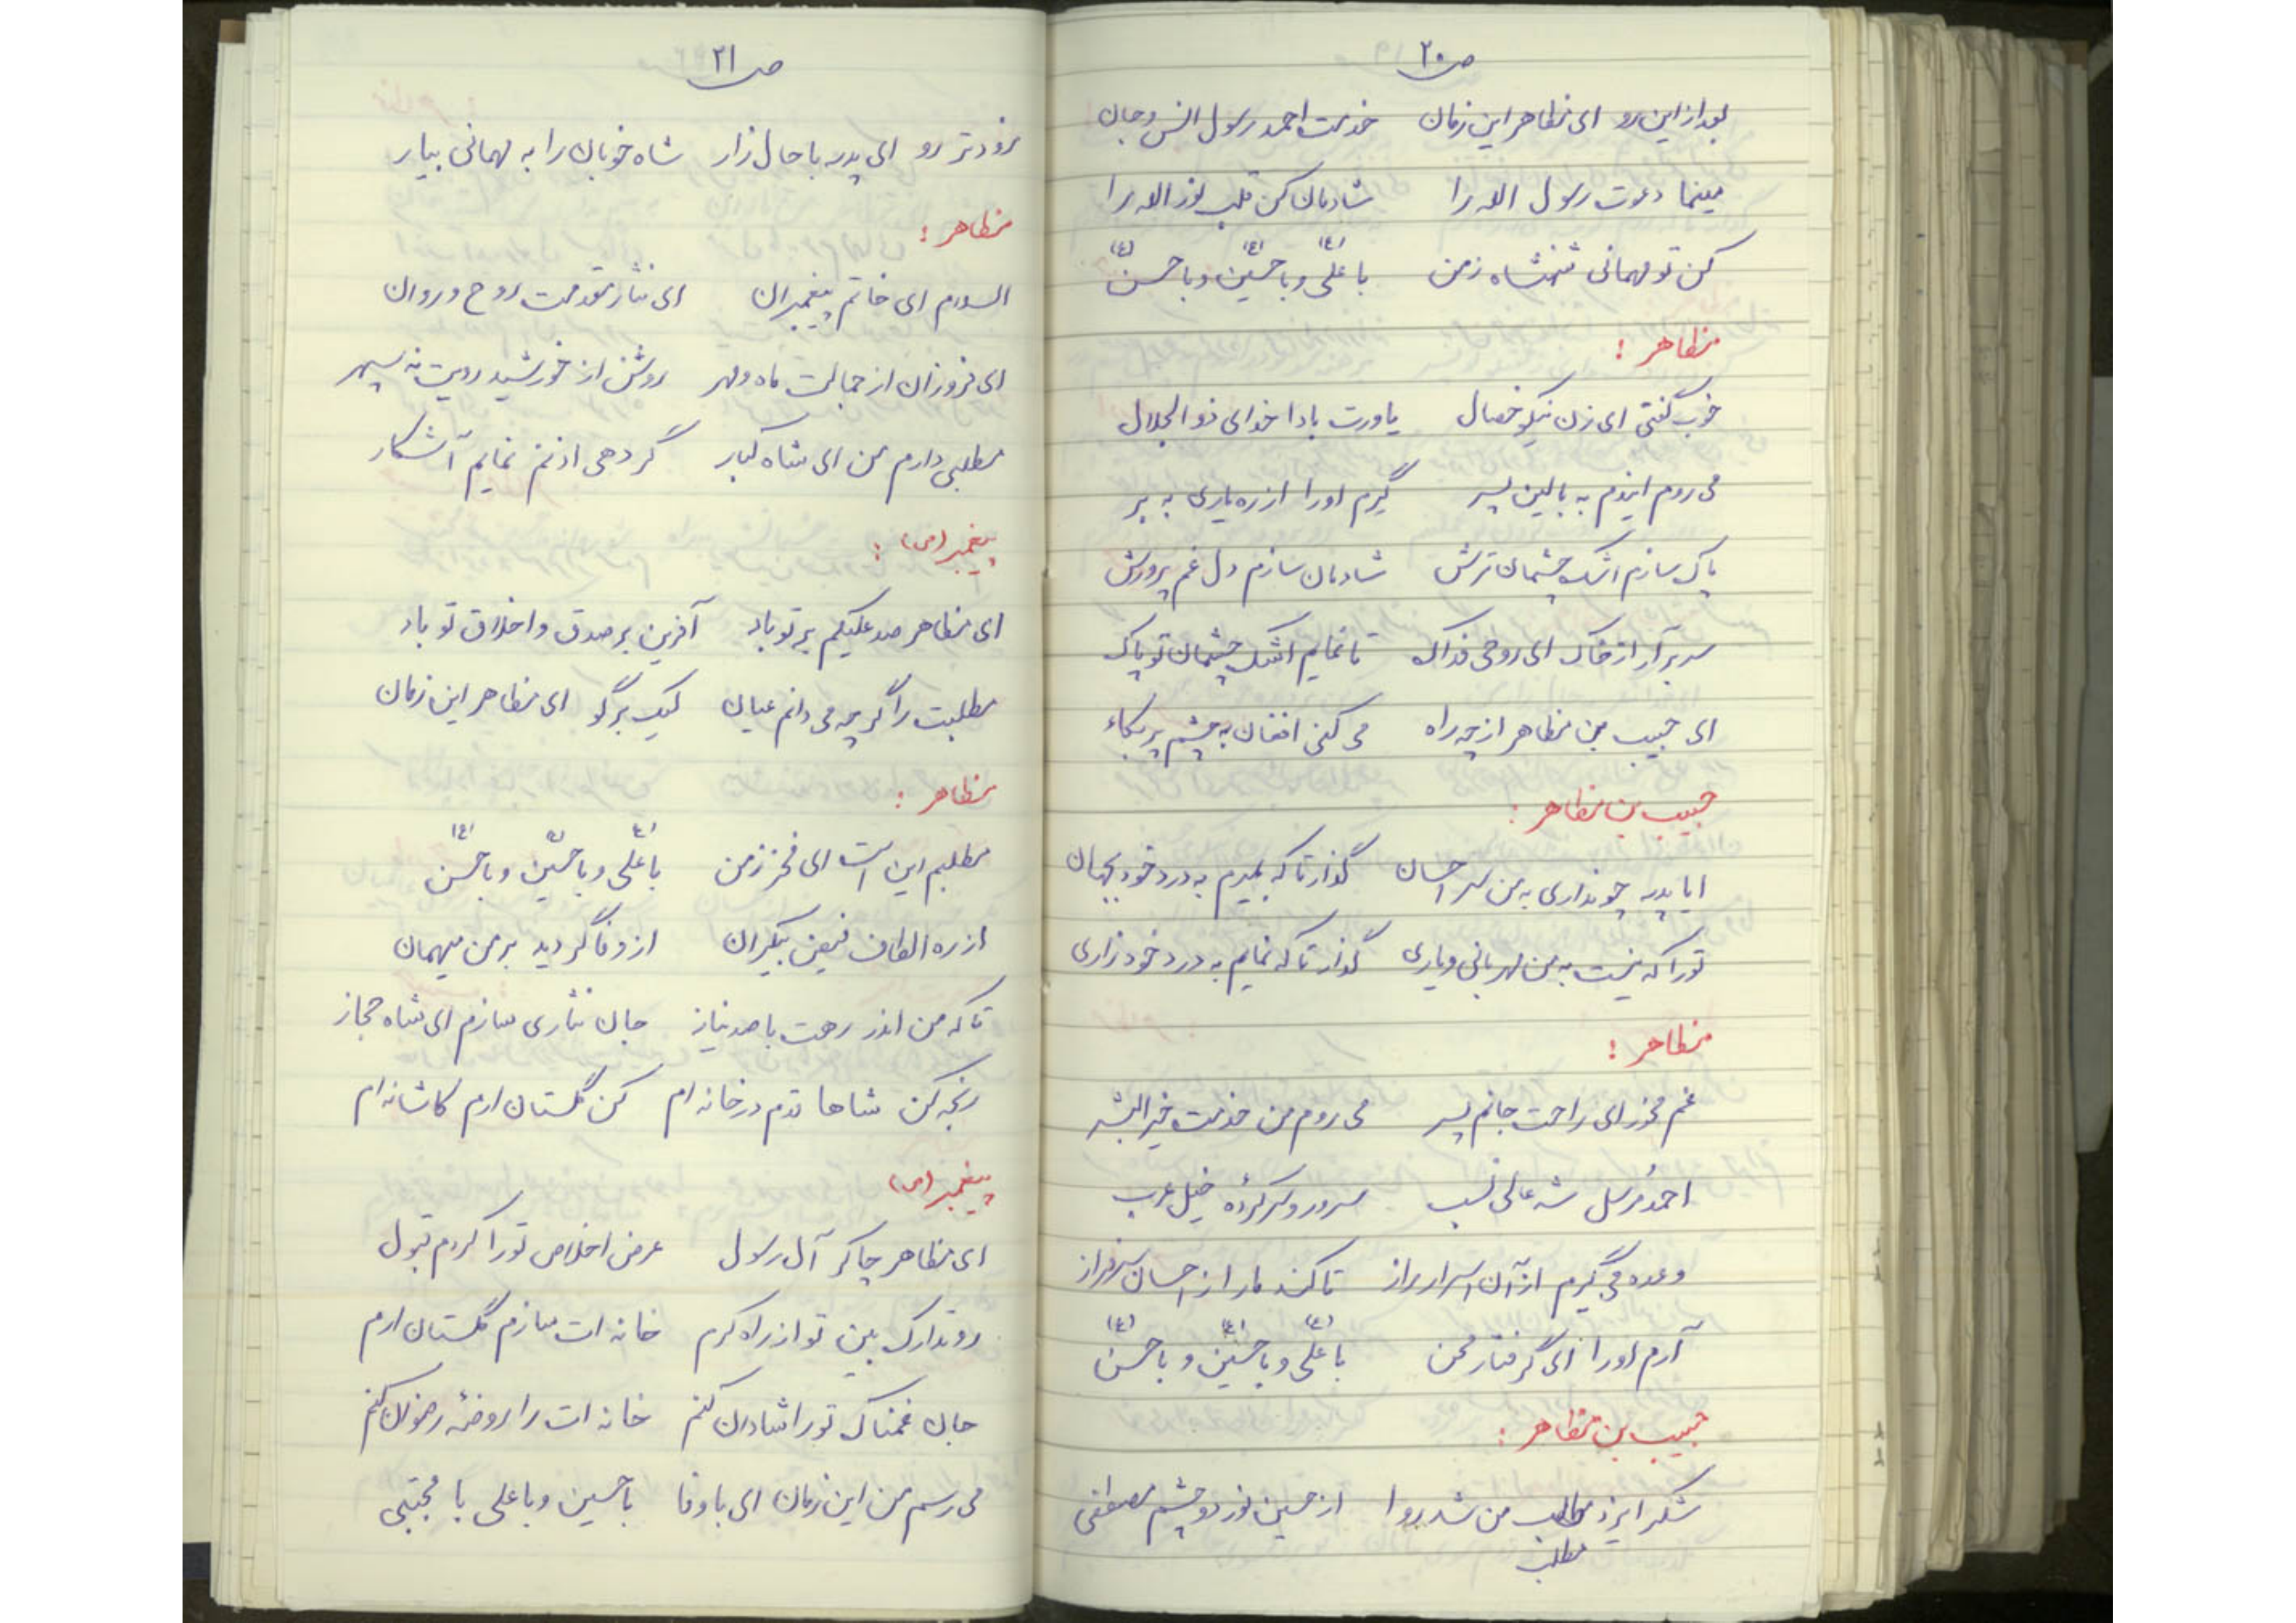 ص ۲۰
بعد از این رو ای مظاهر این زمان خدمت احمد رسول انس و جان
مینما دعوت رسول الله را شادمان کن قلب نور الله را
کن تو مهمانی شهنشاه زمن با علی (ع) و با حسین (ع) و با حسن (ع)
مظاهر :
خوب گفتی ای زن نیکو خصال یاورت بادا خدای ذوالجلال
می روم ایندم به بالین پسر گیرم او را از ره یاری به بر
پاک سازم اشک چشمان ترش شادمان سازم دل غم پرورش
سر برآر از خاک ای روحی فداک تا نمایم اشک چشمان تو پاک
ای حبیب بن مظاهر از چه راه می کنی افغان به چشم پر بکاء
حبیب بن مظاهر :
ایا پدر چو نداری به من سر احسان گذار تا که بمیرم به درد خود بجهان
تو را که نیست به من مهربانی و یاری گذار تا که نمایم به درد خود زاری
مظاهر :
غم مخور ای راحت جانم پسر می روم من خدمت خیر البشر
احمد مرسل شه عالی نسب سرور و سرکرده خیل عرب
وعده می گیرم از آن اسرار راز تا کند ما را ز احسان سرفراز
آرم او را ای گرفتار محن با علی (ع) و با حسین (ع) و با حسن (ع)
حبیب بن مظاهر :
شکر ایزد مطلب من شد روا از حسین نور دو چشم مصطفی
مطلب
ص ۲۱
زودتر رو ای پدر با حال زار شاه خوبان را به مهمانی بیار
مظاهر :
السلام ای خاتم پیغمبران ای نثار مقدمت روح و روان
ای فروزان از جمالت ماه و مهر روشن از خورشید رویت نه سپهر
مطلبی دارم من ای شاه کبار گر دهی اذنم نمایم آشکار
پیغمبر (ص) :
ای مظاهر صد علیکم بر تو باد آفرین بر صدق و اخلاق تو باد
مطلبت را گرچه می دانم عیان لیک برگو ای مظاهر این زمان
مظاهر :
مطلبم این است ای فخر زمن با علی (ع) و با حسین (ع) و با حسن (ع)
از ره الطاف فیض بیکران از وفا گردید بر من میهمان
تا که من اندر رهت با صد نیاز جان نثاری سازم ای شاه حجاز
رنجه کن شاها قدم در خانه ام کن گلستان ارم کاشانه ام
پیغمبر (ص)
ای مظاهر چاکر آل رسول عرض اخلاص تو را کردم قبول
رو تدارک بین تو از راه کرم خانه ات سازم گلستان ارم
جان غمناک تو را شادان کنم خانه ات را روضهٔ رضوان کنم
می رسم من این زمان ای با وفا با حسین و با علی با مجتبی